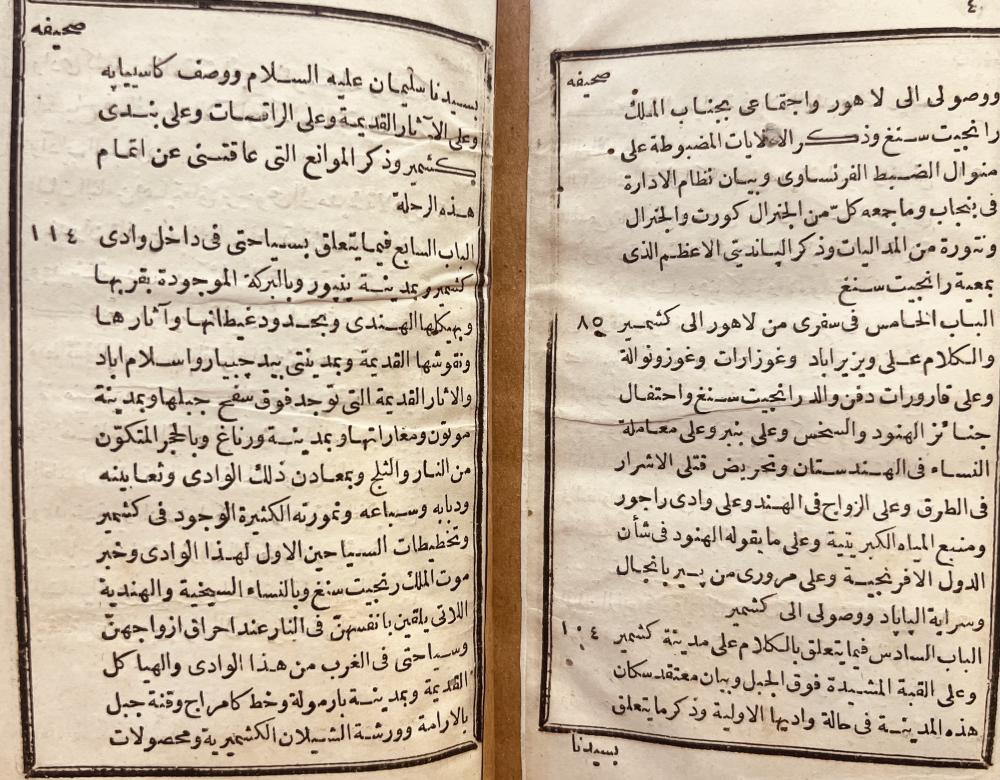 ٤
صحيفه
ووصولى الى لاهور واجتماعى بجناب الملك
رانجيت سنغ وذكر الايالات المضبوطة على
منوال الضبط الفرنساوى وبيان نظام الادارة
فى بنجاب وما جمعه كل من الجنرال كورت والجنرال
ونتورة من المداليات وذكر الپانديتى الاعظم الذى
بمعية رانجيت سنغ
الباب الخامس فى سفرى من لاهور الى كشمير ٨٥
والكلام على ويزيراباد وغوزارات وغوزونوالة
وعلى قارورات دفن والد رانجيت سنغ واحتفال
جنائز الهنود والسخس وعلى بنبر وعلى معاملة
النساء فى الهندستان وتحريض قتلى الاشرار
فى الطرق وعلى الزواج فى الهند وعلى وادى راجور
ومنبع المياه الكبريتية وعلى ما يقوله الهنود فى شأن
الدول الافرنجية وعلى مرورى من پيريانجال
وسراية الپاپاد ووصولى الى كشمير
الباب السادس فيما يتعلق بالكلام على مدينة كشمير ١٠٤
وعلى القبة المشيدة فوق الجبل وبيان معتقد سكان
هذه المدينة فى حالة واديها الاولية وذكر ما يتعلق
بسيدنا
صحيفه
بسيدنا سليمان عليه السلام ووصف كاسيياپه
وعلى الآثار القديمة وعلى الراقصات وعلى بندى
كشمير وذكر الموانع التى عاقتنى عن اتمام
هذه الرحلة
الباب السابع فيما يتعلق بسياحتى فى داخل وادى ١١٤
كشمير وبمدينة نيپور وبالبركة الموجودة بقربها
وبهيكلها الهندى وبحدود غيطانها وآثارها
ونقوشها القديمة وبمدينتى بيدجيبار واسلام اباد
والاثار القديمة التى توجد فوق سفح جبلها وبمدينة
موتون ومغاراتها وبمدينة ورناغ وبالحجر المتكوّن
من النار والثلج وبمعادن ذلك الوادى وثعابينه
ودبابه وسباعه ونمورته الكثيرة الوجود فى كشمير
وتخطيطات السياحين الاول لهذا الوادى وخبر
موت الملك رنجيت سنغ وبالنساء السيخية والهندية
اللاتى يلقين بانفسهن فى النار عند احراق ازواجهنّ
وسياحتى فى الغرب من هذا الوادى والهياكل
القديمة وبمدينة بارمولة وخط كامراج وقنة جبل
بالارامة وورشة الشيلان الكشميرية ومحصولات